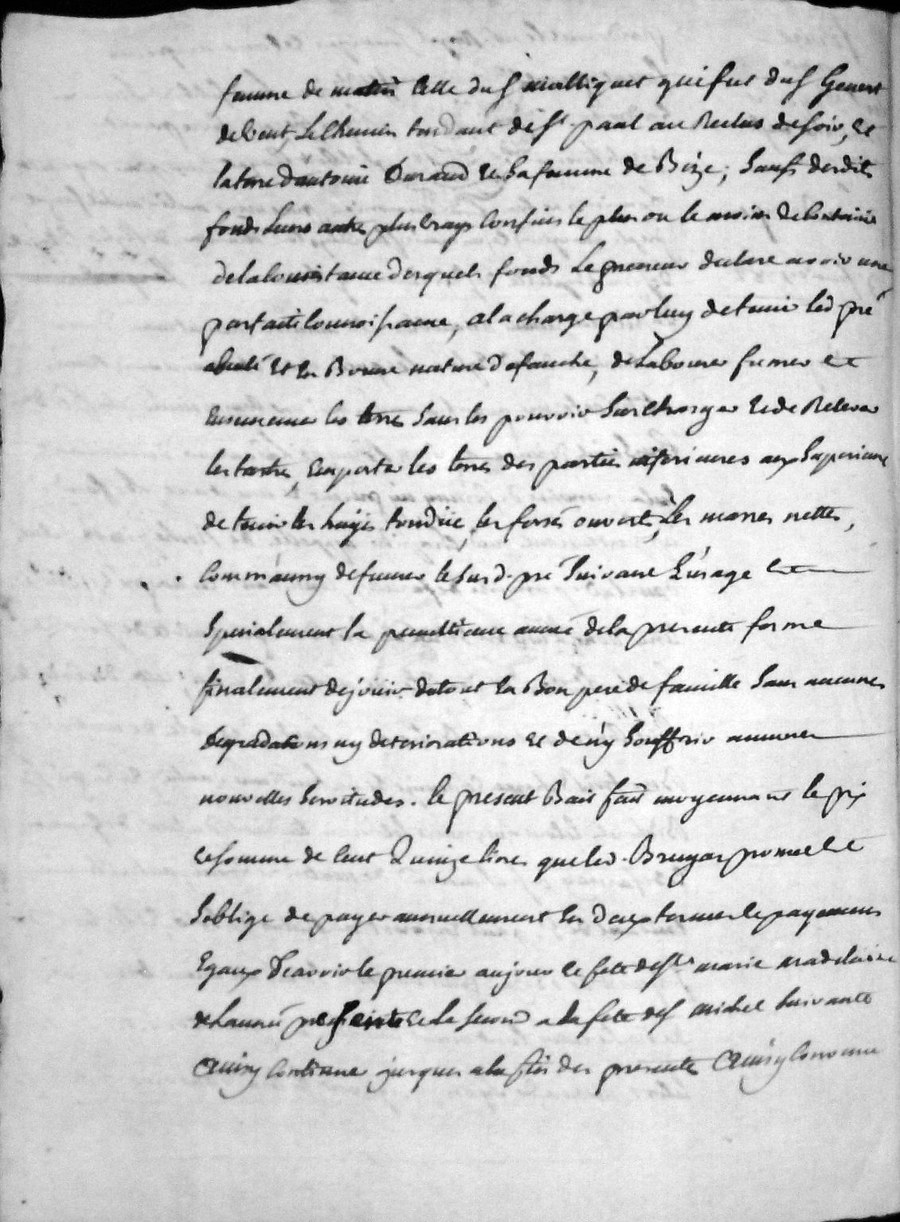 femme de matin celle du s. qui fut du s.
de vent, Le chemin tendant de st paul au Reclus de soir, et
la terre d'antoine Durand et sa femme de Bize; sauf desdits
fonds leurs autres plus vrays confins le plus ou le moins de contenue
de la consistance desquels fonds Le preneur declare avoir une
parfaite connoissance, a la charge par luy de tenir led pré
et en Bonne nature de fauche, de Labourer fumer et
ensemencer les terres sans les pouvoir surcharger et de Relever
les terres, emporter les terres des parties inferieures aux superieures
de tenir les hayes tondües, les fossés ouverts, Les nettes,
comm'aussy de fumer le susd. pré suivant L'usage et
specialement la année de la presente ferme
finalement de joüir du tout en Bon pere de famille sans aucunes
degradations ny deteriorations et de n'y souffrir aucunes
nouvelles servitudes. le present Bail fait moyennant le prix
et somme de cent Quinze livres que led. Bruyas promet et
s'oblige de payer annuellement en deux termes et payements
Egaux Scavoir le premier au jour et fete de ste marie madelaine
de l'année presente et Le second a la fete de s michel suivante
et ainsy continuer jusques a la fin des presentes et ainsy convenu